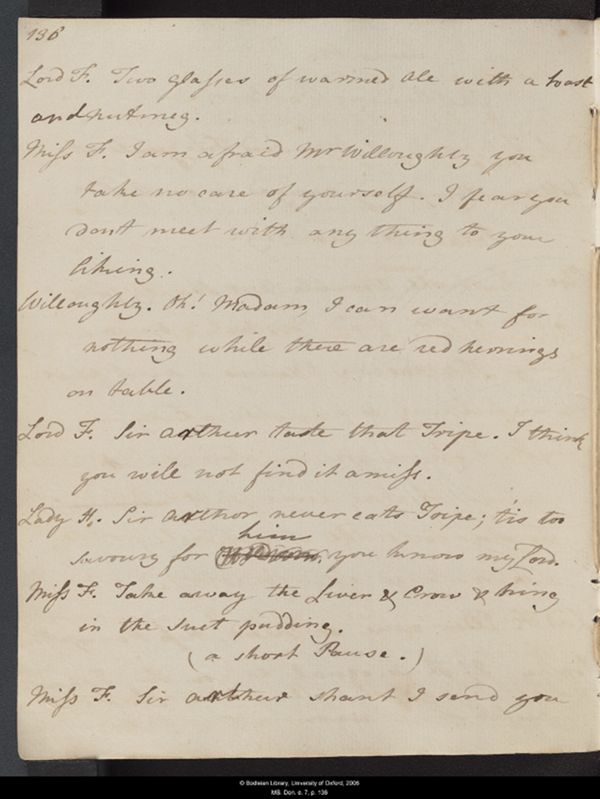 136
Lord F. Two glasses of warmed ale with a toast
and nutmeg.
Miss F. I am afraid Mr Willoughby you
take no care of yourself. I fear you
dont meet with any thing to your
liking.
Willoughby. Oh! Madam, I can want for
nothing while there are red herrings
on table.
Lord F. Sir Arthur taste that Tripe. I think
you will not find it amiss.
Lady H. Sir Arthor never eats Tripe; tis too
him
savoury for you know my Lord.
Miss F. Take away the Liver & Crow & bring
in the suet pudding.
(a short Pause.)
Miss F. Sir Arthur shant I send you
© Bodleian Library, University of Oxford, 2006
MS. Don. e. 7, p. 136